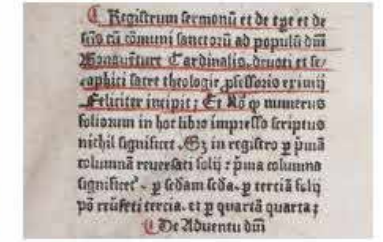 Registrum sermonū et de tꝑe et de
sctīs cū cōmuni sanctorū ad populū dm̄
Bonauēture Cardinalis, deuoti et se⸗
raphici sacre theologie ꝓfessoris eximij
Feliciter incipit; Et Nō ꝙ numerus
foliorum in hoc libro impresso scriptus
nichil significet. Sʒ in registro ꝑ pͥmā
columnā reuersati folij : pͥma columna
significet᷑. ꝑ scdam scda. ꝑ terciā folij
pō
tercia. et ꝑ quartā quarta :
De Aduentu dn̄i